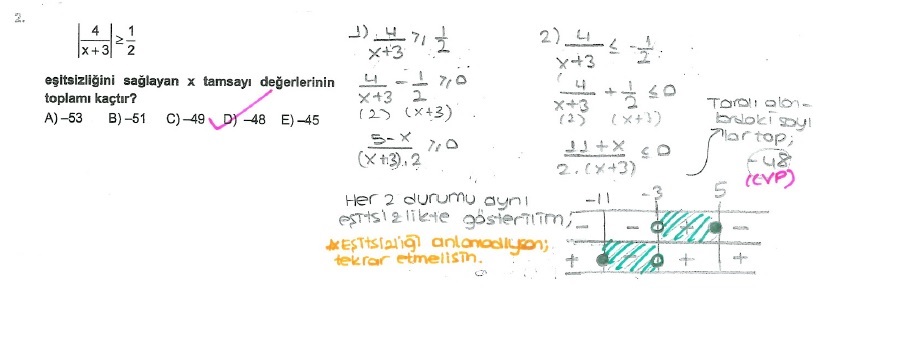 2.
|4/(x+3)| ≥ 1/2
eşitsizliğini sağlayan x tamsayı değerlerinin
toplamı kaçtır?
A) –53 B) –51 C) –49 D) –48 E) –45
1) 4/(x+3) ≥ 1/2
4/(x+3) - 1/2 ≥ 0
(2) (x+3)
(5-x)/((x+3).2) ≥ 0
2) 4/(x+3) ≤ -1/2
4/(x+3) + 1/2 ≤ 0
(2) (x+3)
(11+x)/(2.(x+3)) ≤ 0
Taralı alan-
lardaki sayı
lar top;
-48
(CVP)
Her 2 durumu aynı
eşitsizlikte gösterelim;
*Eşitsizliği anlamadıysan;
tekrar etmelisin.
-11 -3 5
- - + -
+ - + +